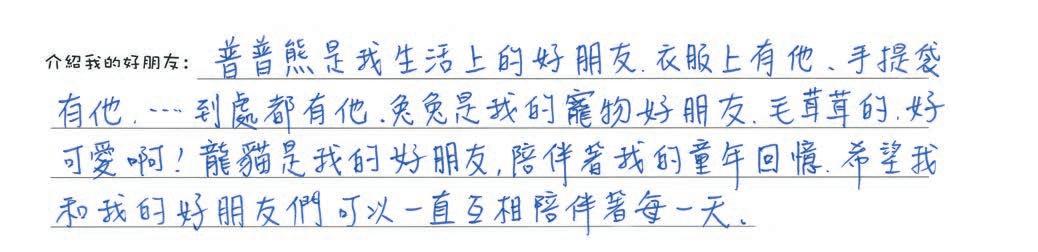 介紹我的好朋友: 普普熊是我生活上的好朋友.衣服上有他、手提袋
有他.…到處都有他.兔兔是我的寵物好朋友.毛茸茸的.好
可愛啊!龍貓是我的好朋友,陪伴著我的童年回憶.希望我
和我的好朋友們可以一直互相陪伴著每一天、